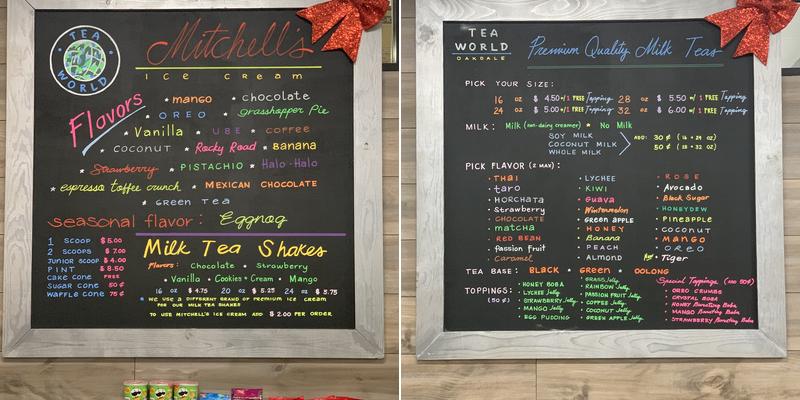 TEA
WORLD
Mitchell's
Ice Cream
Flavors
* mango * chocolate
* OREO * Grasshopper Pie
* Vanilla * UBE * COFFEE
* COCONUT * Rocky Road * BANANA
* Strawberry * PISTACHIO * Halo-Halo
* espresto toffee crunch * MEXICAN CHOCOLATE
* GREEN TEA
seasonal flavor: Eggnog
1 SCOOP $5.00
2 SCOOPS $7.00
JUNIOR SCOOP $4.00
PINT $8.50
CAKE CONE FREE
SUGAR CONE 50¢
WAFFLE CONE 75¢
Milk Tea Shakes
Flavors: Chocolate * Strawberry
* Vanilla * Cookies + Cream * Mango
16 oz $4.75 20 oz $5.25 24 oz $5.75
* WE USE A DIFFERENT BRAND OF PREMIUM ICE CREAM
FOR OUR MILK TEA SHAKES
TO USE MITCHELL'S ICE CREAM ADD $2.00 PER ORDER
TEA
WORLD
OAKDALE
Premium Quality Milk Teas
PICK YOUR SIZE:
16 oz $4.50 w/1 FREE Topping 28 oz $5.50 w/1 FREE Topping
24 oz $5.00 w/1 FREE Topping 32 oz $6.00 w/1 FREE Topping
MILK: Milk (non-dairy creamer) * No Milk
SOY MILK
COCONUT MILK
WHOLE MILK
ADD: 30¢ (16 + 24 OZ)
50¢ (28 + 32 OZ)
PICK FLAVOR (2 MAX):
• THAI • LYCHEE • ROSE
• taro • KIWI • Avocado
• HORCHATA • Guava • Black Sugar
• Strawberry • Watermelon • HONEYDEW
• CHOCOLATE • Green apple • PINEAPPLE
• matcha • HONEY • COCONUT
• RED BEAN • Banana • MANGO
• Passion Fruit • PEACH • OREO
• Caramel • ALMOND • Tiger
TEA BASE: BLACK * Green * OOLONG
TOPPINGS:
(50¢)
• HONEY BOBA
• LYCHEE Jelly
• STRAWBERRY Jelly
• MANGO Jelly
• EGG PUDDING
• GRASS Jelly
• RAINBOW Jelly
• PASSION FRUIT Jelly
• COFFEE Jelly
• COCONUT Jelly
• GREEN APPLE Jelly
Special Toppings
• OREO CRUMBS
• CRYSTAL BOBA
• HONEY Bursting Boba
• MANGO Bursting Boba
• STRAWBERRY Bursting Boba